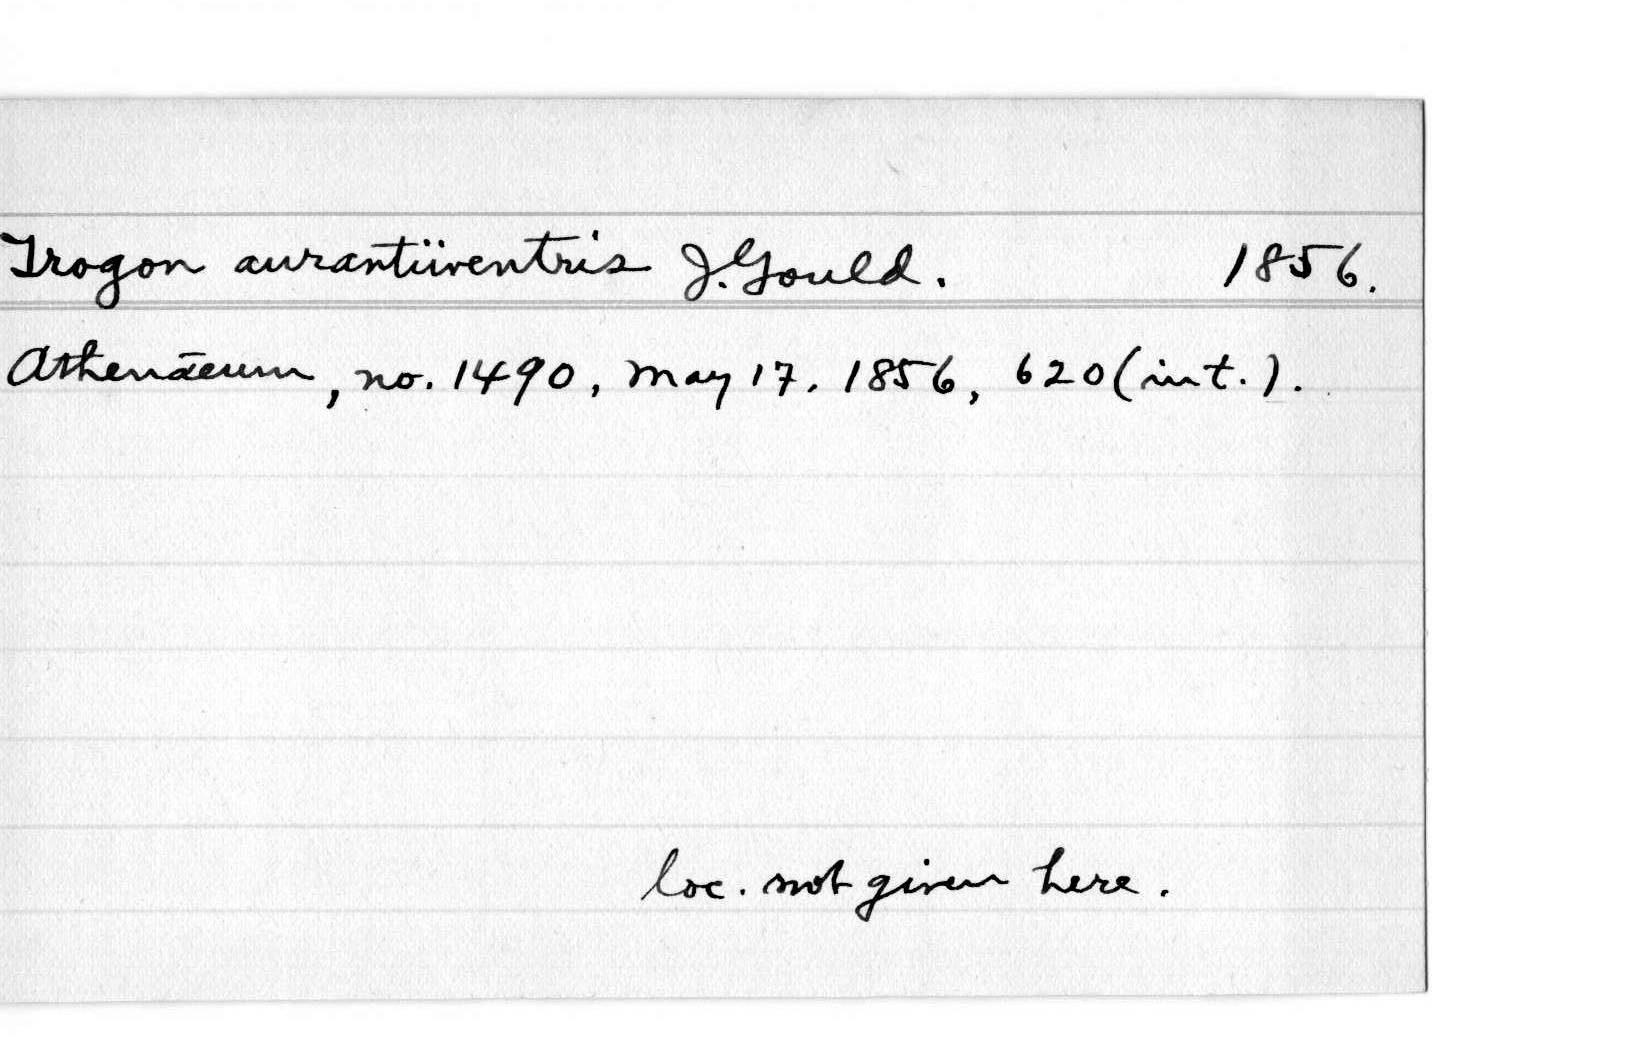 Trogon aurantiiventris J. Gould. 1856.
Athenaeum, no. 1490, May 17, 1856, 620 (int.).
loc. not given here.